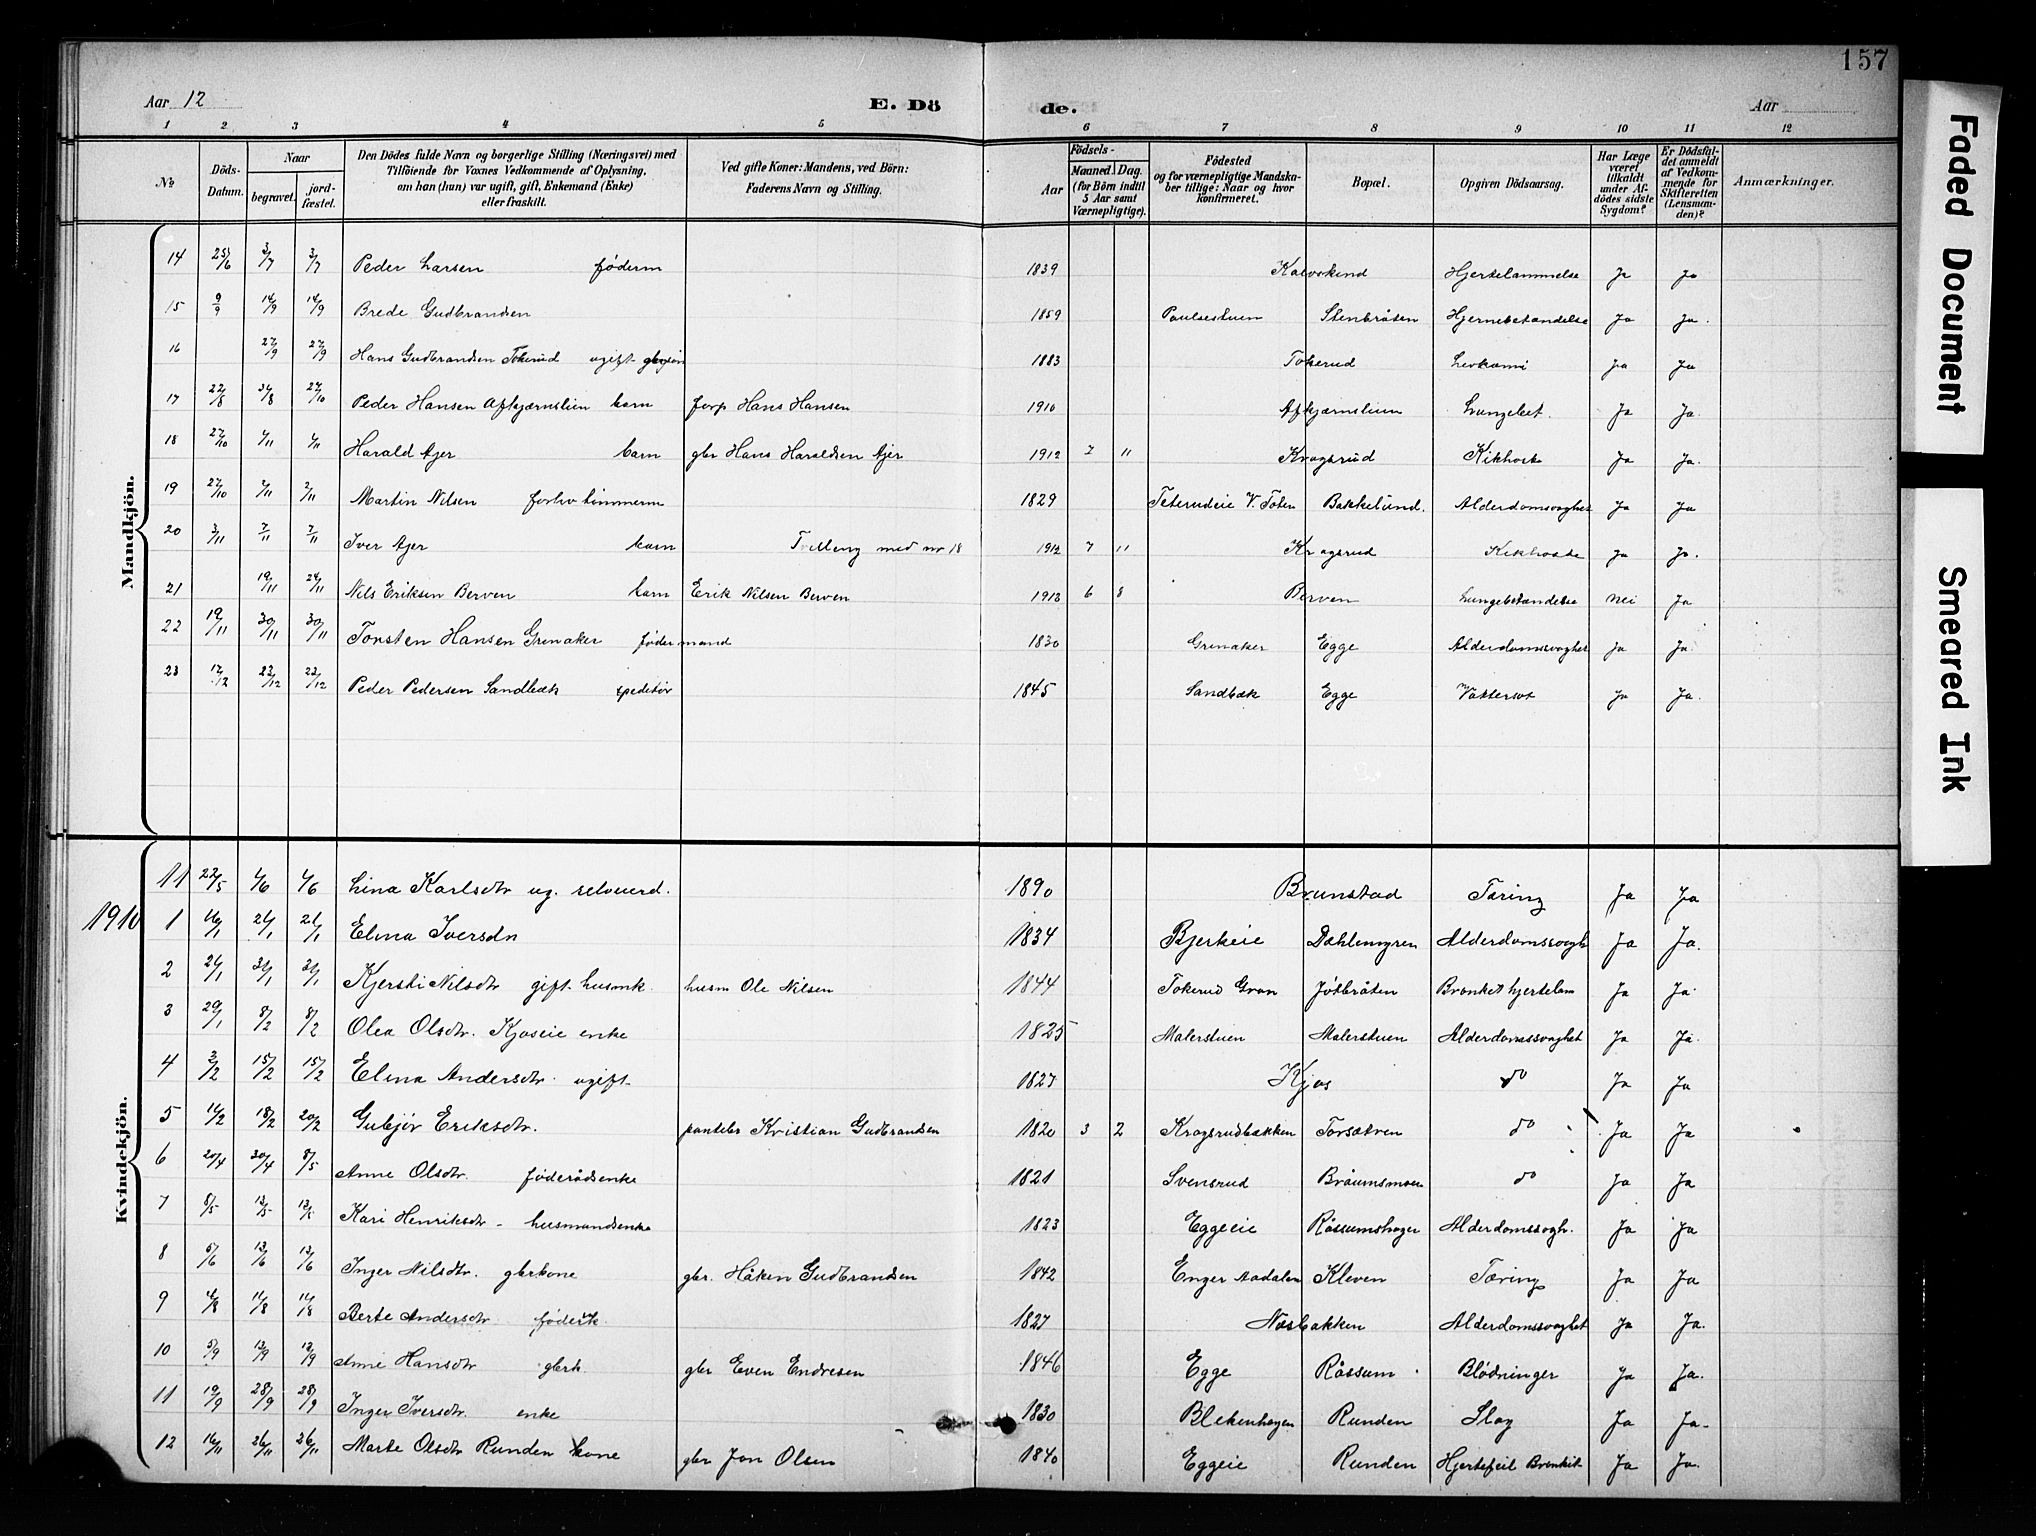 157
Aar 12 E. Dö de. Aar
1 2 3 4 5 6 7 8 9 10 11 12
No. Döds-Datum. Naar begravet. jord-fæstet. Den Dödes fulde Navn og borgerlige Stilling (Næringsvei) med Tilföiende for Voxnes Vedkommende af Oplysning, om han (hun) var ugift, gift, Enkemand (Enke) eller fraskilt. Ved gifte Koner: Mandens, ved Börn: Faderens Navn og Stilling. Aar Födsels- Maaned Dag. (for Börn indtil 5 Aar samt Værnepligtige). Födested og for værnepligtige Mandskaber tillige: Naar og hvor konfirmeret. Bopæl. Opgiven Dödsaarsag. Har Læge været tilkaldt under Afdödes sidste Sygdom? Er Dödsfaldet anmeldt af Vedkommende for Skifteretten (Lensmanden)? Anmærkninger.
Mandkjön.
14 25/6 3/7 3/7 Peder Larsen föderm 1839 Kalvskind Hjertelammelse Ja Ja
15 9/9 14/9 14/9 Brede Gudbrandsen 1859 Paulsestuen Stenbråten Hjernebetændelse Ja Ja.
16 27/9 27/9 Hans Gudbrandsen Tokerud ugift 1883 Tokerud Levkæmi Ja Ja
17 22/8 31/8 27/10 Peder Hansen Afkjærnslien barn forp Hans Hansen 1910 Afkjærnslien Lungebet. Ja Ja.
18 27/10 4/11 4/11 Harald Ajer barn gbr Hans Haraldsen Ajer 1912 7 11 Kragsrud Kikhoste Ja Ja.
19 27/10 2/11 2/11 Martin Nilsen forhv tümmerm 1829 Teterudeie V. Toten Bakkelund. Alderdomsvaghet Ja Ja
20 3/11 7/11 7/11 Iver Ajer barn Tvilling med nr 18 1912 7 11 Kragsrud Kikhoste Ja Ja.
21 19/11 24/11 Nils Eriksen Berven barn Erik Nilsen Berven 1912 6 8 Berven Lungebetændelse Nei Ja
22 19/11 30/11 30/11 Torsten Hansen Grinaker födermand 1830 Grinaker Egge Alderdomssvaghet Ja Ja.
23 17/12 22/12 22/12 Peder Pedersen Sandbæk speditör 1845 Sandbæk Egge Vattersot Ja Ja.
Kvindekjön.
11 22/5 4/6 4/6 Lina Karlsdtr ug. selveierd. 1890 Brunstad Tæring Ja Ja
1910
1 16/1 21/1 21/1 Elina Iversdn 1834 Bjerkeie Dæhlenmyren Alderdomssvagh Ja Ja.
2 24/1 31/1 31/1 Kjersti Nilsdtr gift husmk. husm Ole Nilsen 1844 Tokerud Gran Jötbråten Bronkit hjertelam Ja Ja.
3 29/1 8/2 8/2 Olea Olsdtr. Kjoseie enke 1825 Malerstuen Malerstuen Alderdomssvaghet Ja Ja.
4 3/2 15/2 15/2 Elina Andersdtr. ugift. 1827 Kjos do Ja Ja
5 14/2 18/2 20/2 Gubjör Eriksdtr. pantebr Kristian Gudbrandsen 1820 3 2 Kragsrudbakken Torsætren do Ja Ja
6 20/4 30/4 8/5 Anne Olsdtr. föderådsenke 1821 Svensrud Bråumsmoen do Ja Ja
7 8/5 13/5 13/5 Kari Henriksdtr - husmandsenke 1823 Eggeie Råssumshagen Alderdomssvagh. Ja Ja
8 5/6 13/6 13/6 Inger Nilsdtr. gbrkone gbr. Håken Gudbrandsen 1842 Enger Aadalen Kleven Tæring Ja Ja
9 4/8 11/8 11/8 Berte Andersdtr föderk. 1827 Næsbakken Alderdomssvaghet Ja Ja.
10 5/9 13/9 13/9 Anne Hansdtr gbrk gbr Even Endresen 1846 Egge Råssum Blödninger Ja Ja.
11 19/9 28/9 28/9 Inger Iversdtr. enke 1830 Blekenhagen Runden Slag Ja Ja-
12 16/11 26/11 26/11 Marte Olsdtr Runden kone gbr Jon Olsen 1840 Eggeie Runden Hjertefeil Bronkit Ja Ja.
Faded Document
Smeared Ink